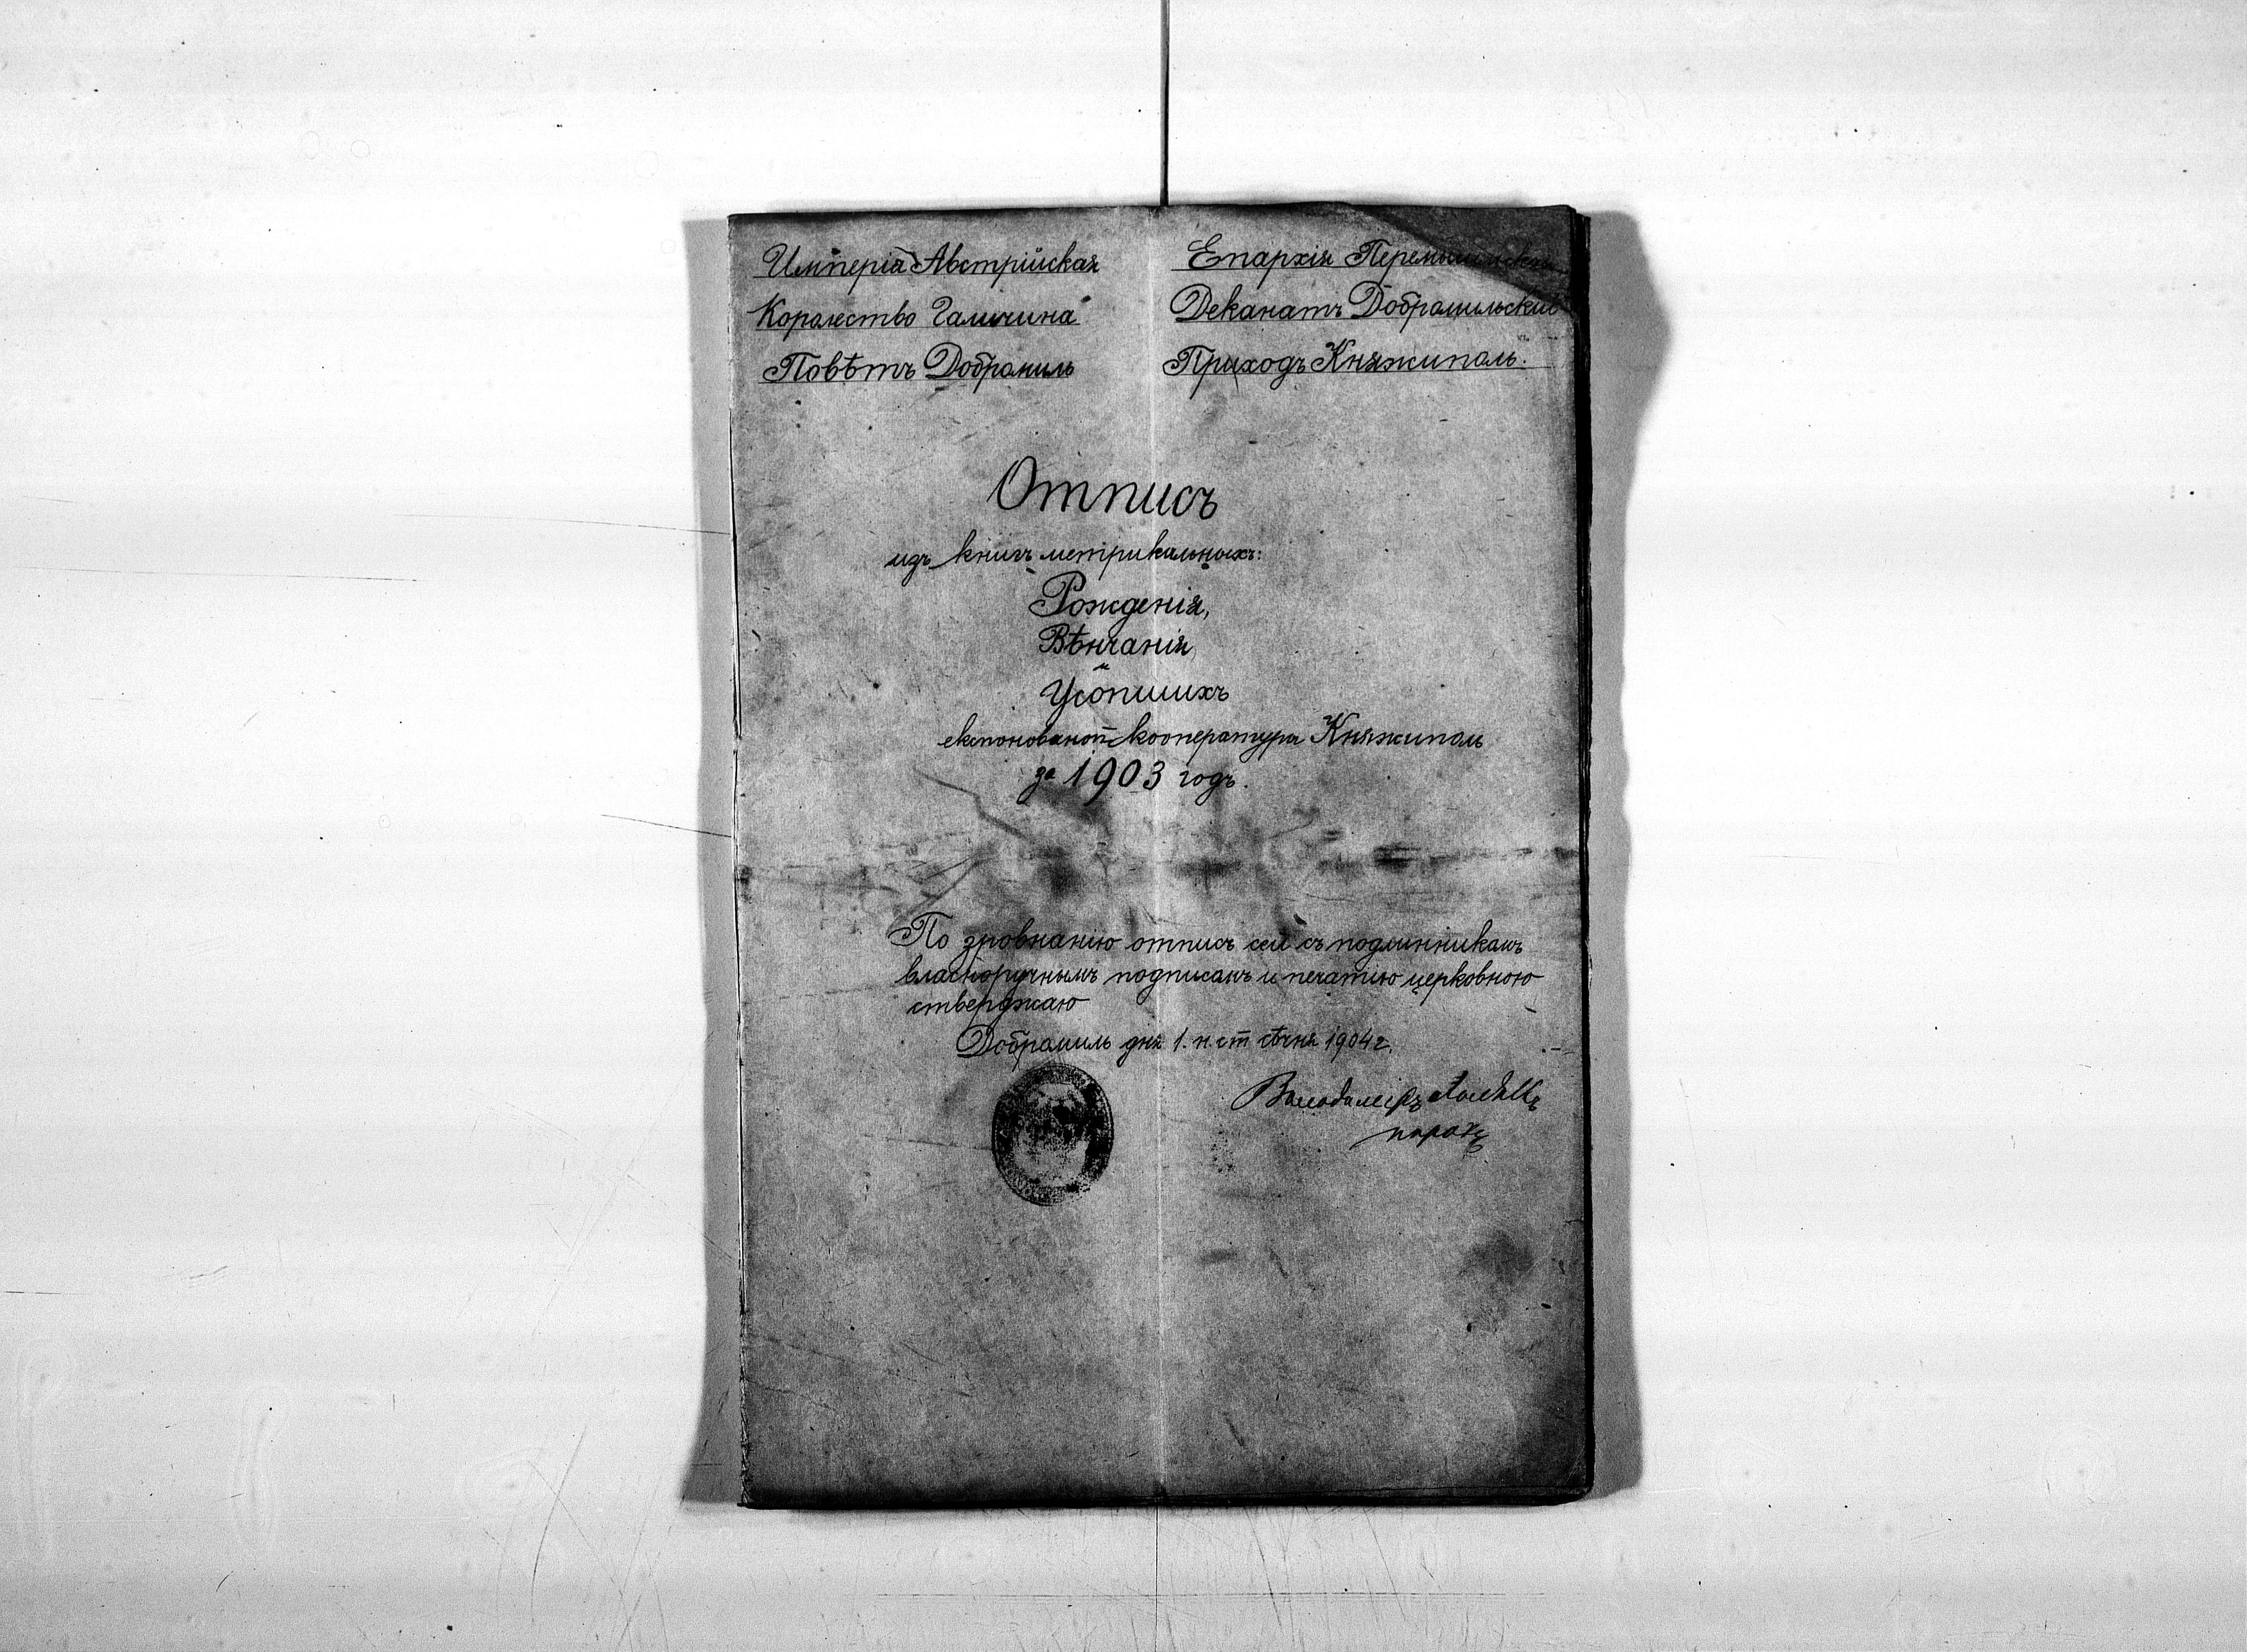 Имперія Австрійская
Королество Галичина
Повѣтъ Добромиль
Епархія Перемышльская
Деканатъ Добромильскій
Приходъ Княжиполь.
Отписъ
изъ книгъ метрикальныхъ:
Рожденія,
Вѣнчанія
и
Усопшихъ
експонованой кооператури Княжиполь
за 1903 годъ.
По зровнанію отписъ сей съ подлинникамъ
власноручнымъ подписамъ и печатію церковною
стверджаю
Добромиль дня 1. н. ст сѣчня 1904 г.
Володимiръ
парохъ